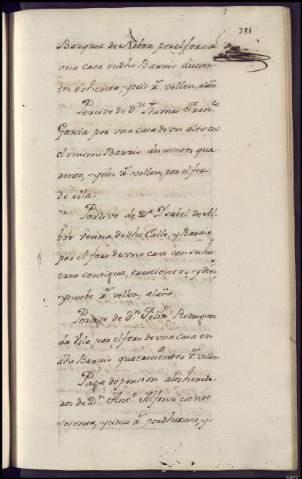 281
Bazques de Noboa por el foro de
una casa en dho Barrio ducien-
tos ochenta, y seis r.s vellon, al año
Percive de d.n Thomas Fran.co
Garcia por una Casa de un alto en
el mismo Barrio doscientos qua-
renta, y dos r.s vellon, por el foro
de ella:
Percive de D.a Isabel de Al-
bor vecina de dha Calle, y Barrio
por el foro de una casa con su hu-
erta contigua, trescientos, y diez
y nuebe r.s vellon, al año
Percive de d.n Felix Rodriguez
da Vila, por el foro de una Casa en
dho Barrio quatrocientos r.s vellon
Paga de pension a los herede-
ros de D.n Ant.o Alfonso ciento
sesenta, y cinco r.s por dha casa, y-